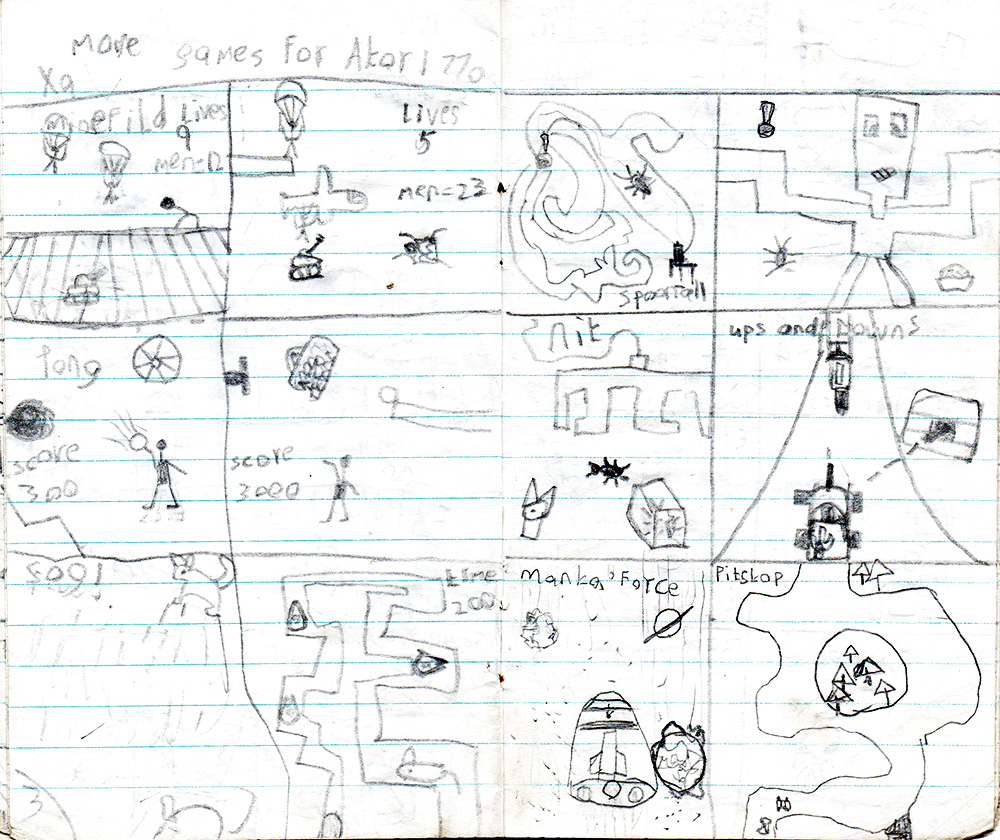 more games for Atari 770
Xa
Minefild Lives
9
men=12
Lives
5
men=23
Spoorfall
Nit
ups and Downs
Pong
score
300
score
3000
time
200
Manta Force
Pitstop
3